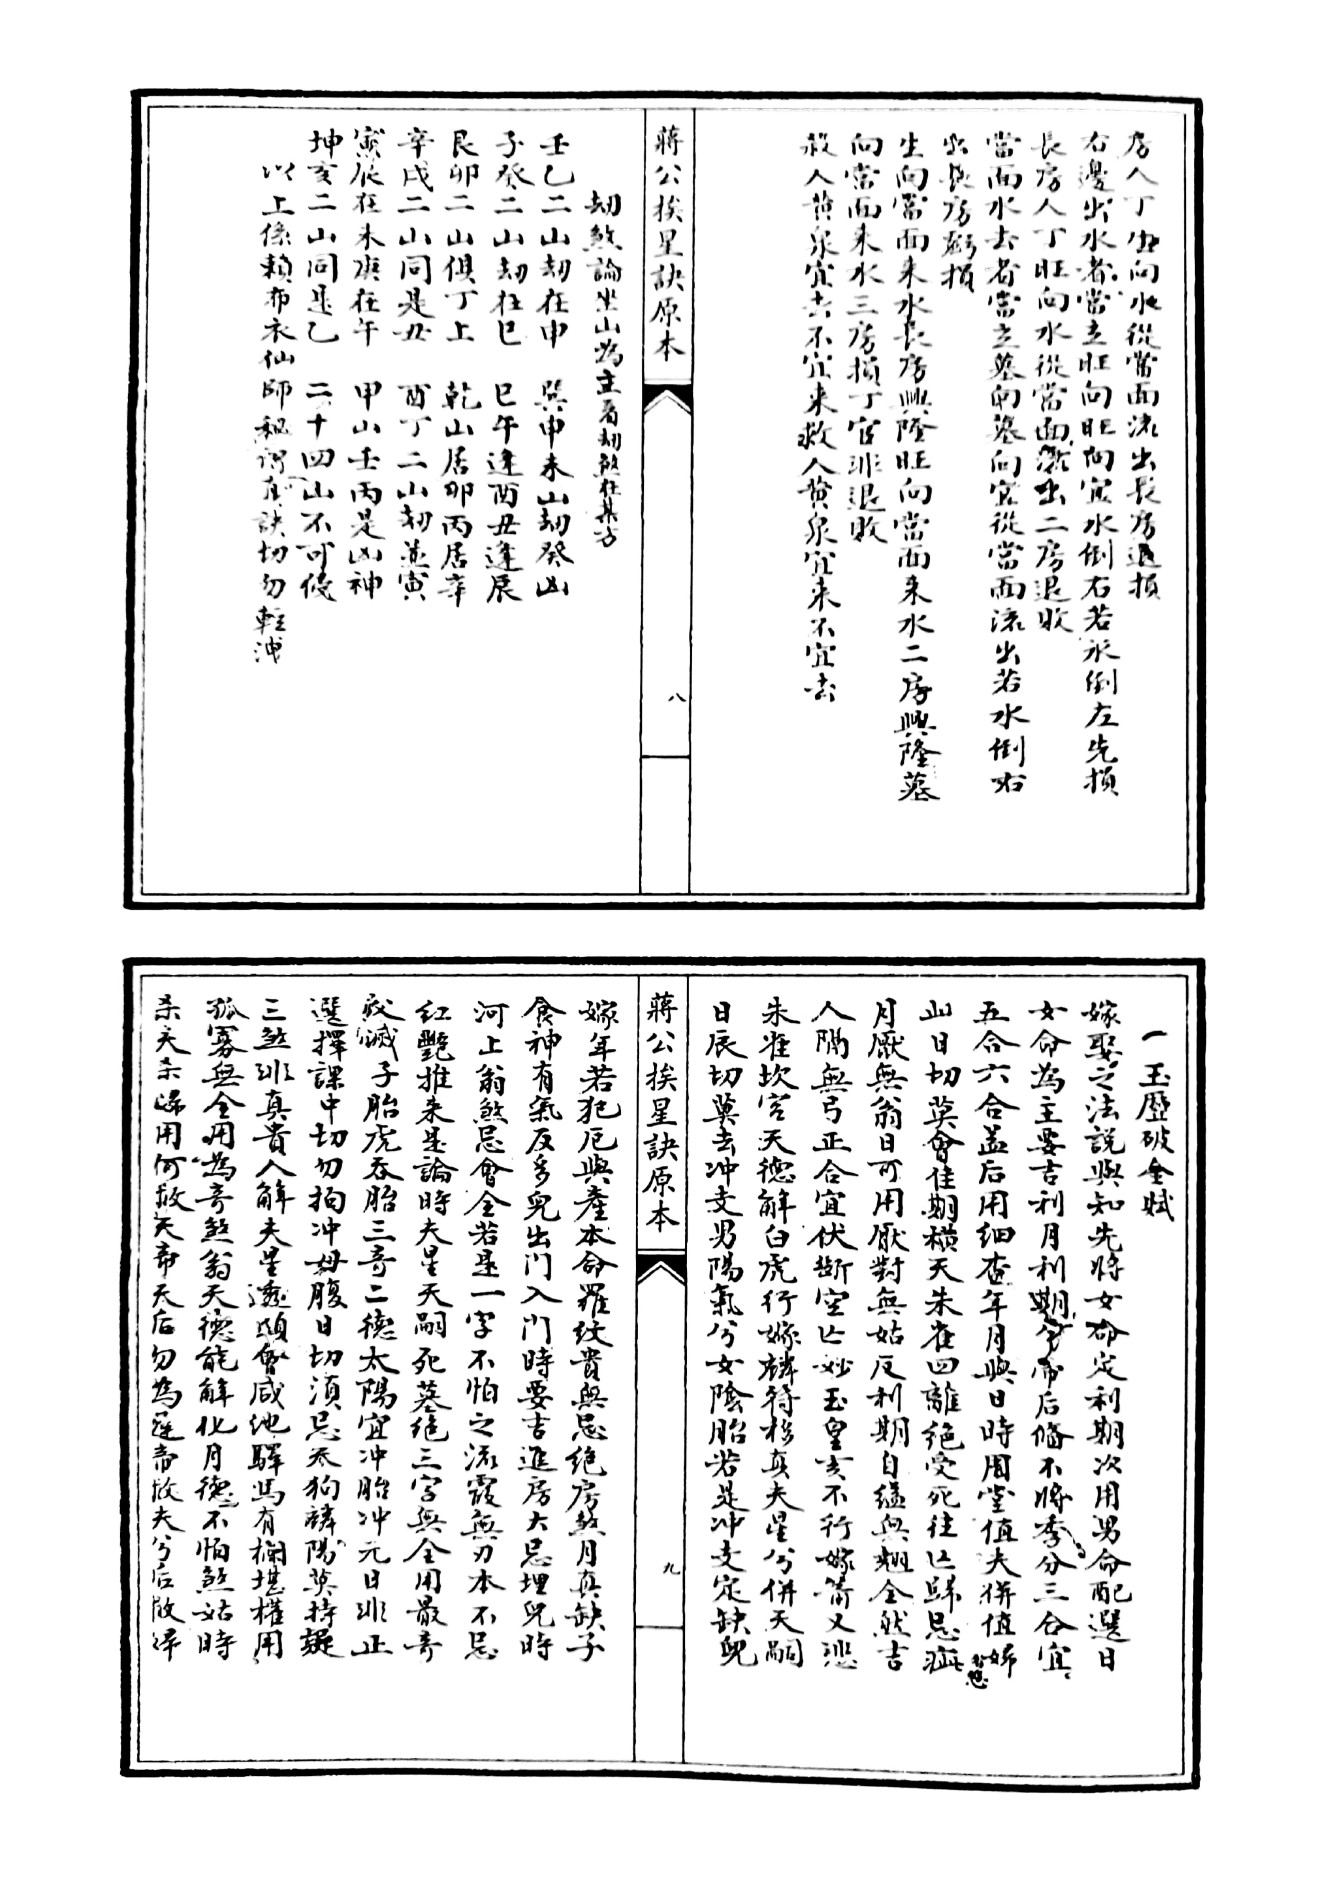 房人丁生向水從當面流出長房退損
右邊出水者當立旺向旺向宜水倒右若水倒左先損
長房人丁旺向水從當面流出二房退敗
當面水去者當立墓向墓向宜從當面流出若水倒右
出長房虧損
生向當面來水長房興隆旺向當面來水二房興隆墓
向當面來水三房損丁官非退敗
殺人黃泉宜去不宜來救人黃泉宜來不宜去
蔣公挨星訣原本
八
劫煞論坐山為主看劫煞在某方
壬乙二山劫在申　巽申未山劫癸凶
子癸二山劫在巳　巳午逢酉丑逢辰
艮卯二山俱丁上　乾山居卯丙居辛
辛戌二山同是丑　酉丁二山劫並寅
寅辰在未庚在午　甲山壬丙是凶神
坤亥二山同是乙　二十四山不可侵
以上係賴布衣仙師秘謂真訣切勿輕洩
一玉歷破全賦
嫁娶之法說與知先將女命定利期次用男命配選日
女命為主要吉利月利期分帝后脩不將季分三合宜
五合六合益后用細查年月與日時周堂值夫併值婦
此日切莫會佳期橫天朱雀四離絕受死往亡歸忌
月厭無翁日可用厭對無姑反利期自縊無翅全然吉
人隔無弓正合宜伏斷空亡妙玉皇亥不行嫁箭又悲
朱雀坎宮天德解白虎行嫁麟符移真夫星兮併天嗣
日辰切莫去冲支男陽氣兮女陰胎若是冲支定缺兒
蔣公挨星訣原本
九
嫁年若犯厄與產本命羅紋貴無忌絕房煞月真缺子
食神有氣反多兒出門入門時要吉進房大忌埋兒時
河上翁煞忌會全若是一字不怕之流霞無刃本不忌
紅艷推來是論時夫星天嗣死墓絕三字無全用最奇
殺滅子胎虎吞胎三奇二德太陽宜冲胎冲元日非正
選擇課中切勿拘冲母腹日切湏忌天狗麟陽莫持疑
三煞非真貴人解夫星透顯會咸池驛馬有欄堪權用
孤寡無全用為奇煞翁天德能解化月德不怕煞姑時
杀夫杀婦用何救天帝天后勿為遲帝救夫兮后救婦